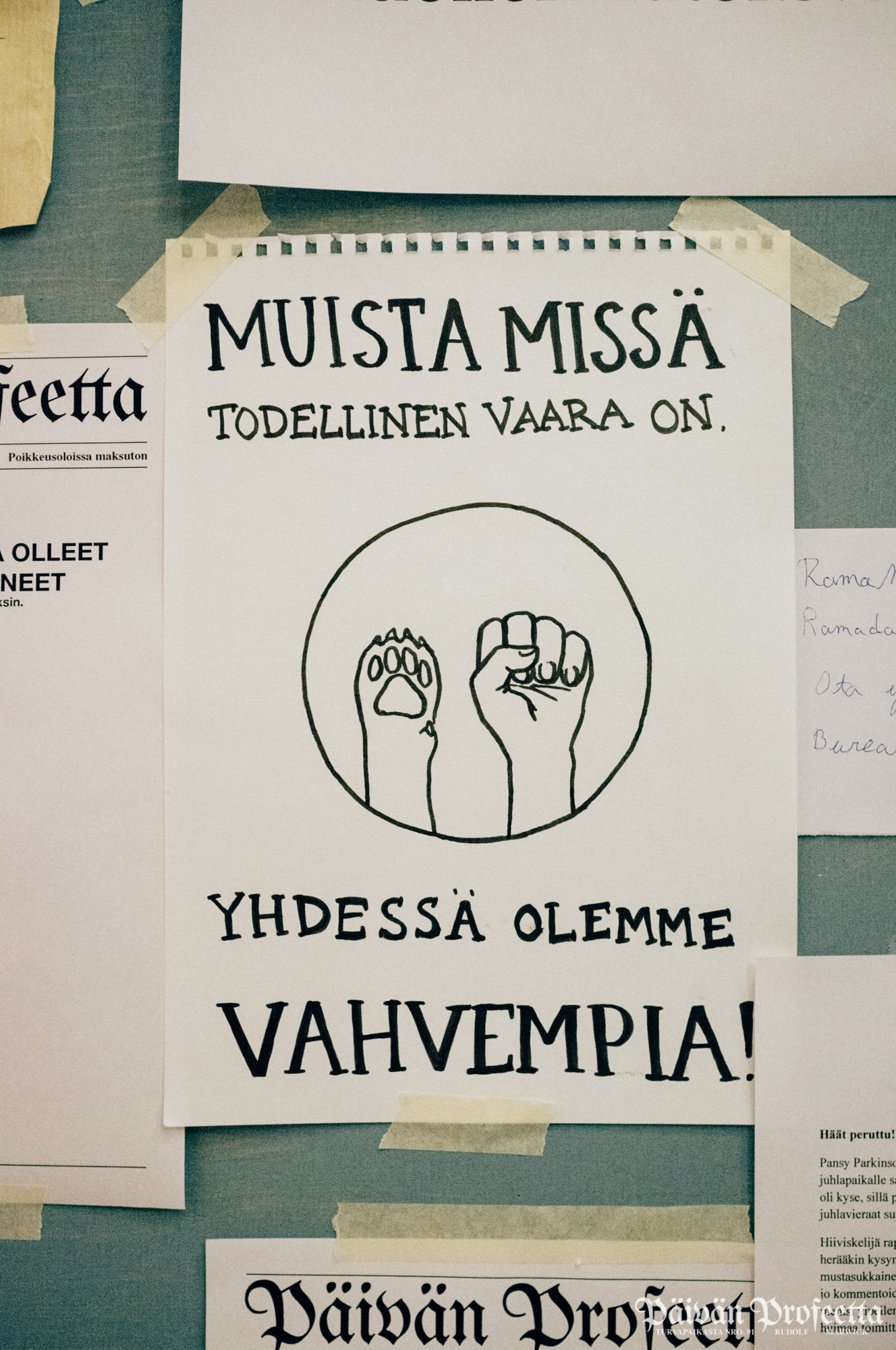 feetta
Poikkeusoloissa maksuton
OLLEET
NEET
MUISTA MISSÄ
TODELLINEN VAARA ON.
YHDESSÄ OLEMME
VAHVEMPIA!
Rama
Ramada
Ota
Burea
Häät peruttu!
Pansy Parkinso
juhlapaikalle sa
oli kyse, sillä p
juhlavieraat su
Hiiviskelijä rap
herääkin kysym
mustasukkaine
jo kommentoid
huimaa toimitt
Päivän Profeett
Päivän Profeetta
TURVAPAIKASTA NRO. 91 RUDOLF WARWICK